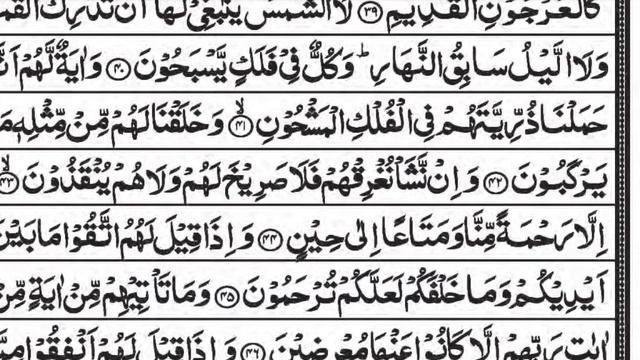 كَالْعُرْجُوْنِ الْقَدِيْمِ ۝۳۹ لَا الشَّمْسُ يَنْۢبَغِيْ لَهَاۤ اَنْ تُدْرِكَ
وَلَا الَّيْلُ سَابِقُ النَّهَارِ ؕ وَكُلٌّ فِيْ فَلَكٍ يَّسْبَحُوْنَ ۝۴۰ وَاٰيَةٌ لَّهُمْ
حَمَلْنَا ذُرِّيَّتَهُمْ فِي الْفُلْكِ الْمَشْحُوْنِ ۝۴۱ۙ وَخَلَقْنَا لَهُمْ مِّنْ مِّثْلِهٖ
يَرْكَبُوْنَ ۝۴۲ وَاِنْ نَّشَاْ نُغْرِقْهُمْ فَلَا صَرِيْخَ لَهُمْ وَلَا هُمْ يُنْقَذُوْنَ ۝۴۳ۙ
اِلَّا رَحْمَةً مِّنَّا وَمَتَاعًا اِلٰى حِيْنٍ ۝۴۴ وَاِذَا قِيْلَ لَهُمُ اتَّقُوْا مَا بَيْنَ
اَيْدِيْكُمْ وَمَا خَلْفَكُمْ لَعَلَّكُمْ تُرْحَمُوْنَ ۝۴۵ وَمَا تَاْتِيْهِمْ مِّنْ اٰيَةٍ مِّنْ
اٰيٰتِ رَبِّهِمْ اِلَّا كَانُوْا عَنْهَا مُعْرِضِيْنَ ۝۴۶ وَاِذَا قِيْلَ لَهُمْ اَنْفِقُوْا